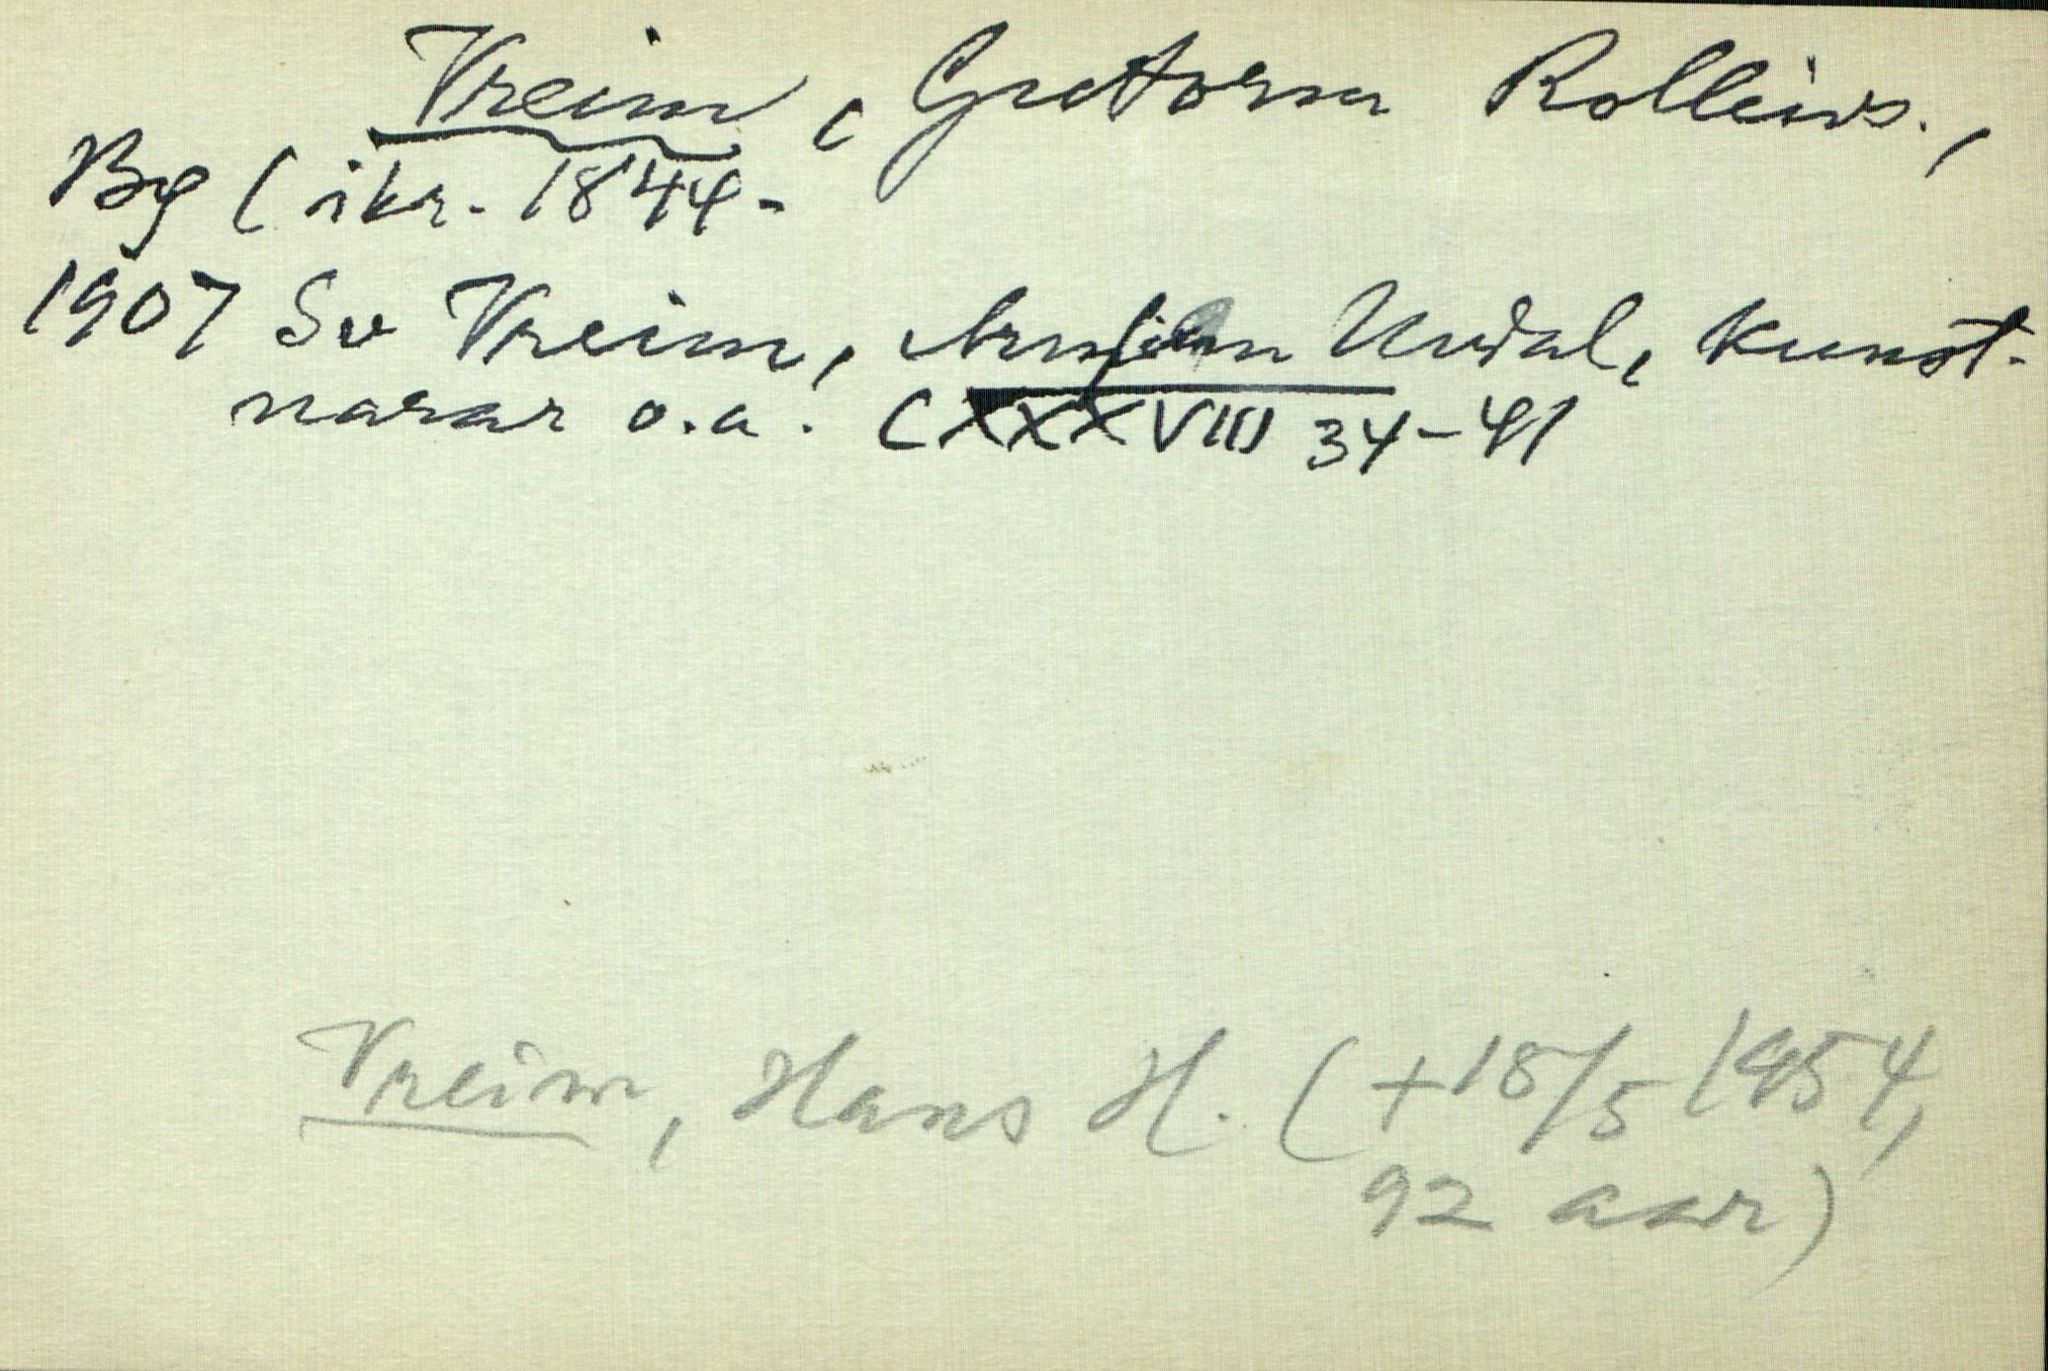 Vreim, Guttorm Rolleivs.,
Bø (ikr. 1844-
1907 Sv Vreim, Uvdal, Kunst-
narar o.a. CXXXVIII 34-41
Vreim, Hans H. (+18/5 1954,
92 aar)